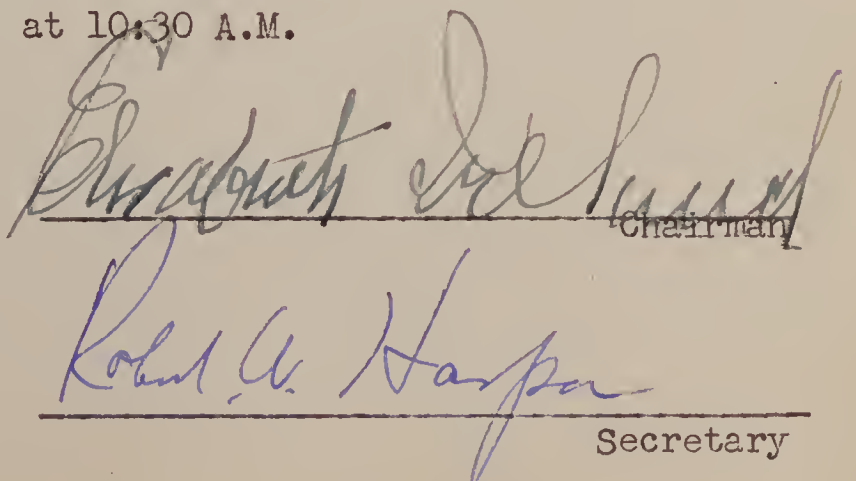 at 10:30 A.M.
Elizabeth
Chairman
Robert W. Harper
Secretary